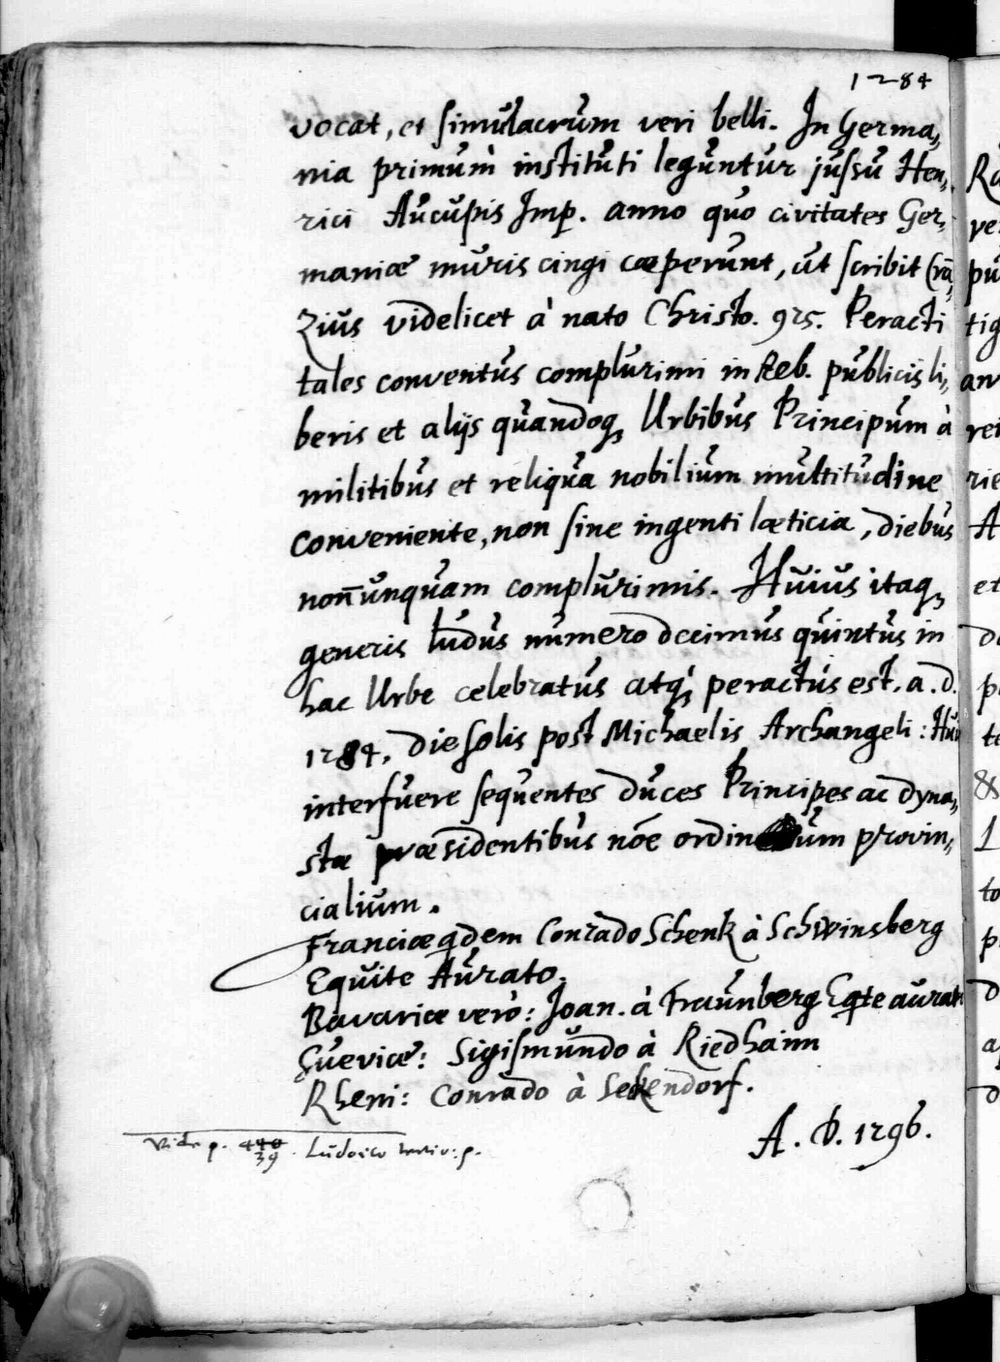 1284
vocat, et simulacrum veri belli. In Germa,
nia primum instituti leguntur jussu Hen,
rici Aucupis Imp. anno quo civitates Ger,
maniæ muris cingi cæperunt, ut scribit Cra,
Zius videlicet à nato Christo. 925. Peracti
tales conventus complurimi in Reb. publicis li,
beris et alijs quandoq, Urbibus Principum à
militibus et reliqua nobilium multitudine
conveniente, non sine ingenti læticia, diebus
non̄unquam complurimis. Huius itaq,
generis ludus numero decimus quintus in
hac Urbe celebratus atq, peractus est. a. d.
1284. die solis post Michaelis Archangeli: Hui
interfuere sequentes duces Principes ac dyna,
stæ præsidentibus nōe ordinum provin,
cialium.
Franciæ qdem Conrado Schenk à Schwinsberg
Equite Aurato.
Bavariæ vero: Joan. à Fraunberg Eqte aurato
Sueviæ: Sigismundo à Riedhaim
Rheni: Conrado à Sekendorf.
A. D. 1296.
Vide p. 440 39. Ludoico p.
Ra
ve
pu
tig
an
rei
rie
A
et
do
p
te
&
to
p
d
a
d